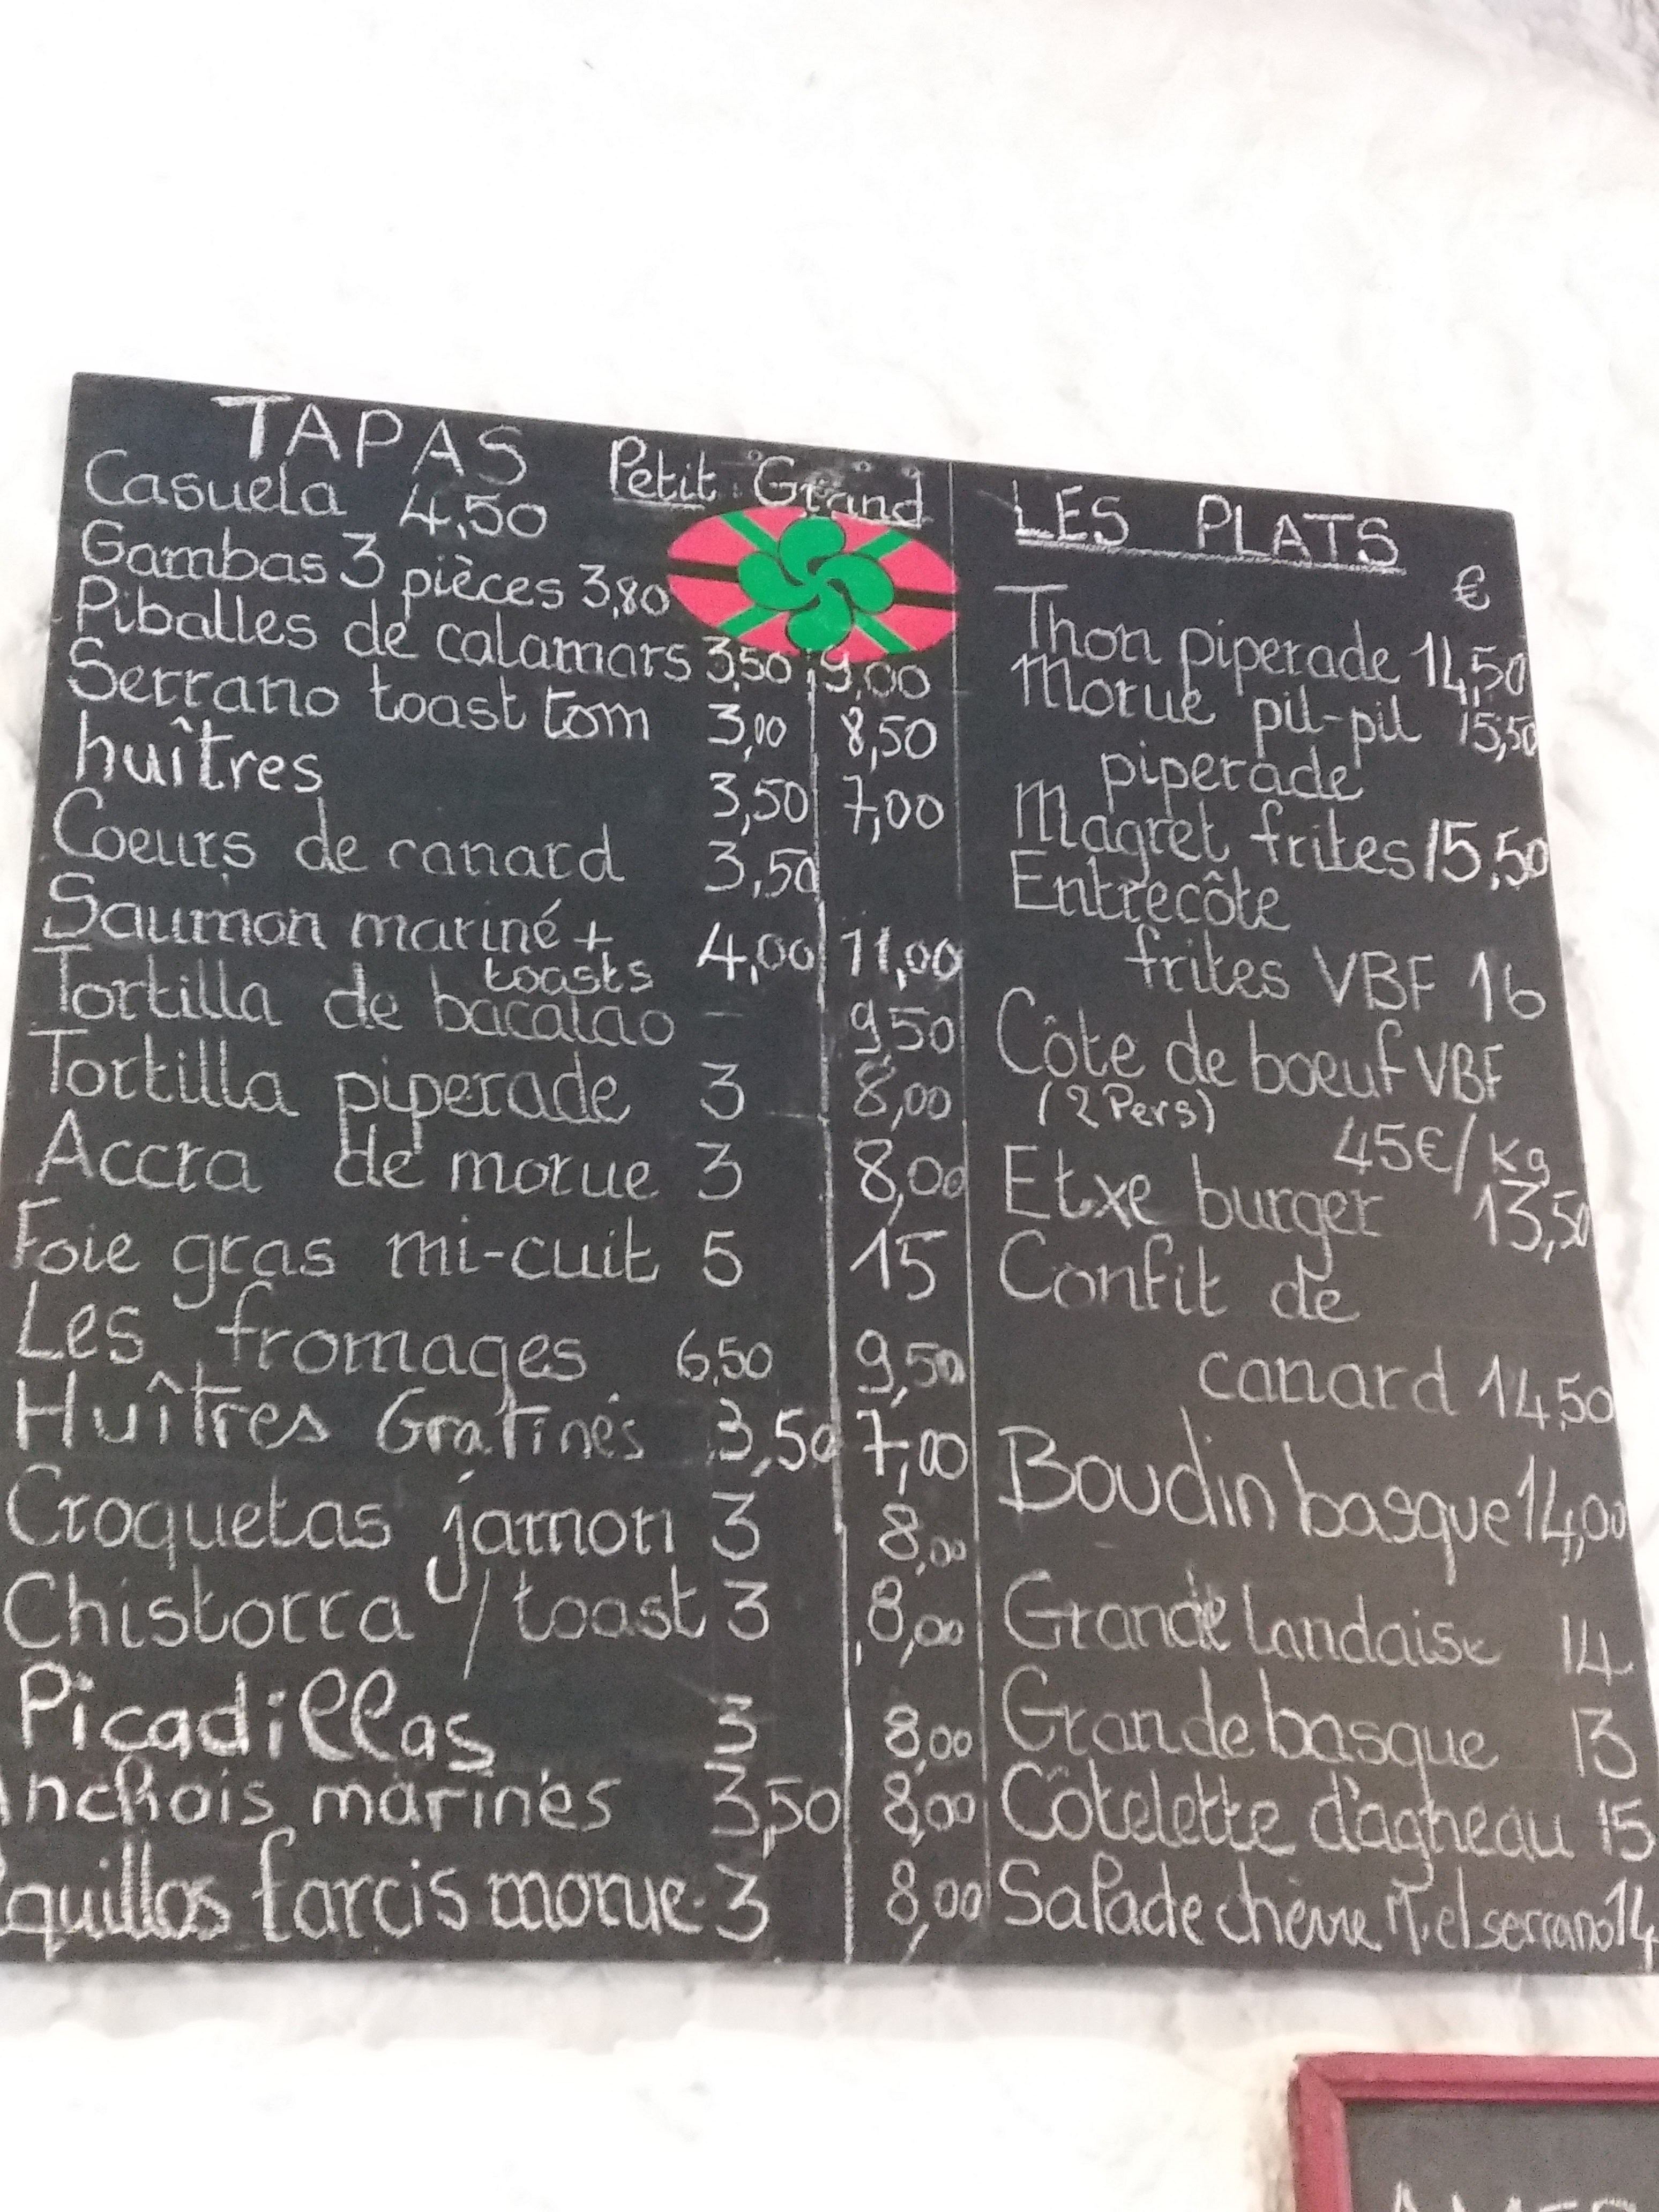 TAPAS Petit Grand
Casuela 4,50
Gambas 3 pièces 3,80
Piballes de calamars 3,50 9,00
Serrano toast tom 3,00 8,50
huîtres 3,50 7,00
Coeurs de canard 3,50
Saumon mariné + 4,00 11,00
toasts
Tortilla de bacalao - 9,50
Tortilla piperade 3 8,00
Accra de morue 3 8,00
Foie gras mi-cuit 5 15
Les fromages 6,50 9,50
Huîtres Gratinés 3,50 7,00
Croquetas jamon 3 8,00
Chistorra / toast 3 8,00
Picadillas 3 8,00
Anchois marinés 3,50 8,00
quillos farcis morue 3 8,00
LES PLATS
€
Thon piperade 14,50
Morue pil-pil 15,50
piperade
Magret frites 15,50
Entrecôte
frites VBF 16
Côte de boeuf VBF
(2 Pers)
45€/Kg
Etxe burger 13,50
Confit de
canard 14,50
Boudin basque 14,00
Grande landaise 14
Grande basque 13
Côtelette d'agneau 15
Salade chèvre Miel serrano 14